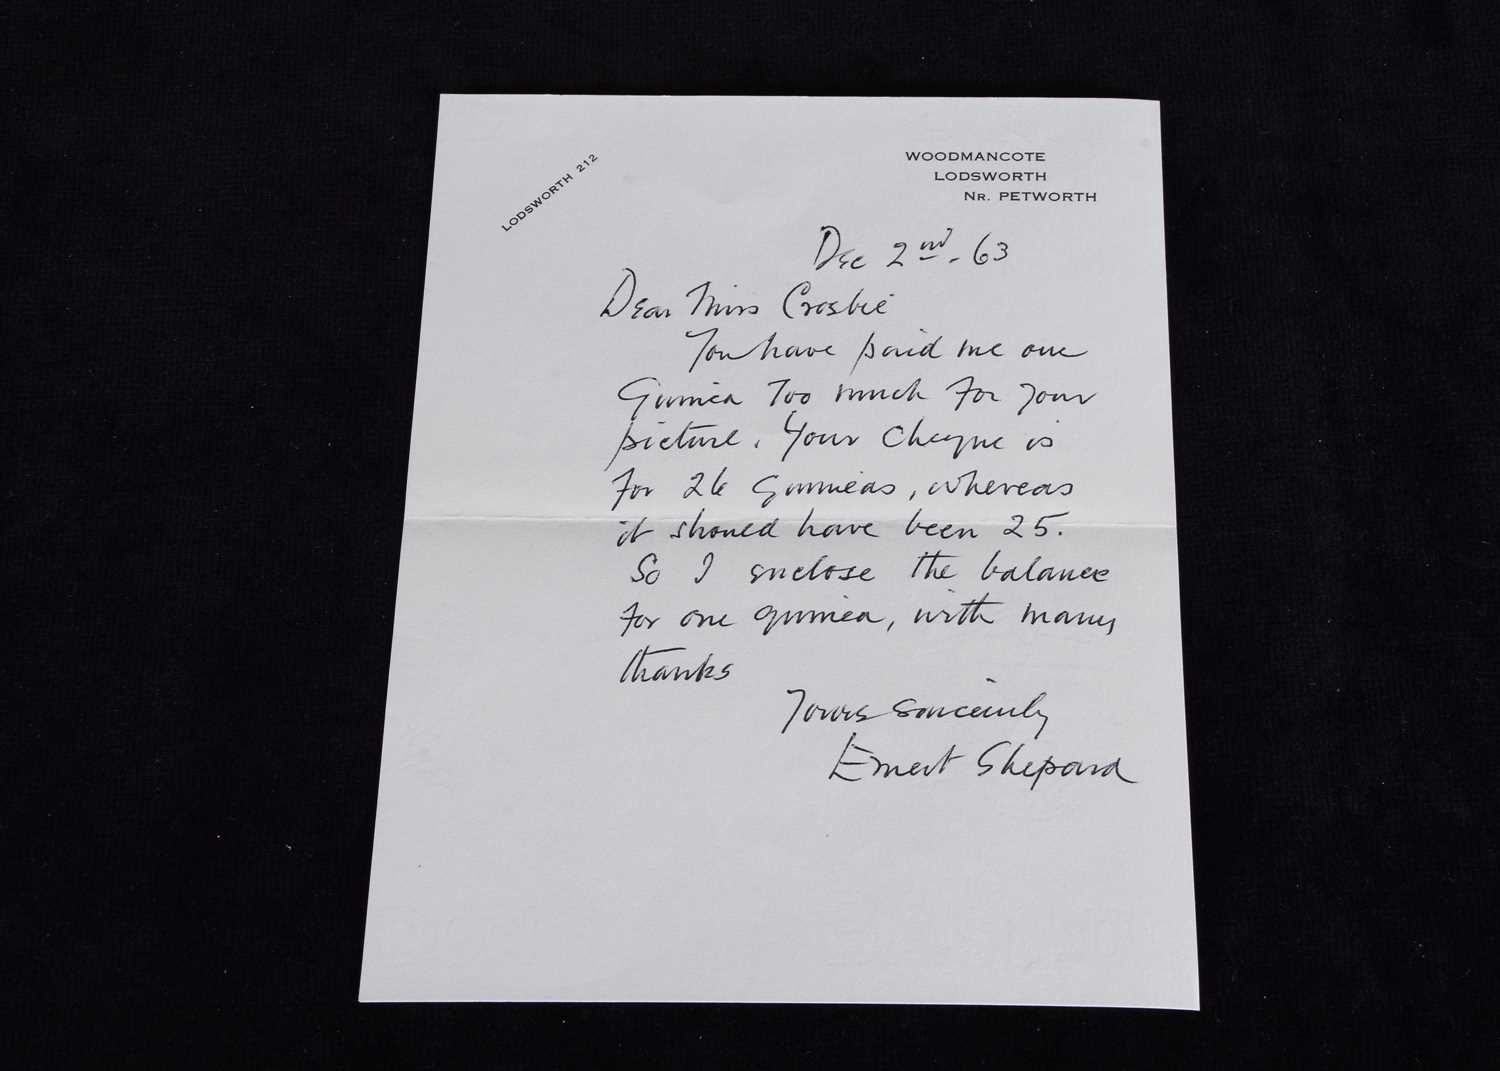 LODSWORTH 212
WOODMANCOTE
LODSWORTH
NR. PETWORTH
Dec 2nd. 63
Dear Miss Crosbie
You have paid me one
Guinea too much for your
picture. Your cheque is
for 26 guineas, whereas
it should have been 25.
So I enclose the balance
for one guinea, with many
thanks
Yours sincerely
Ernest Shepard